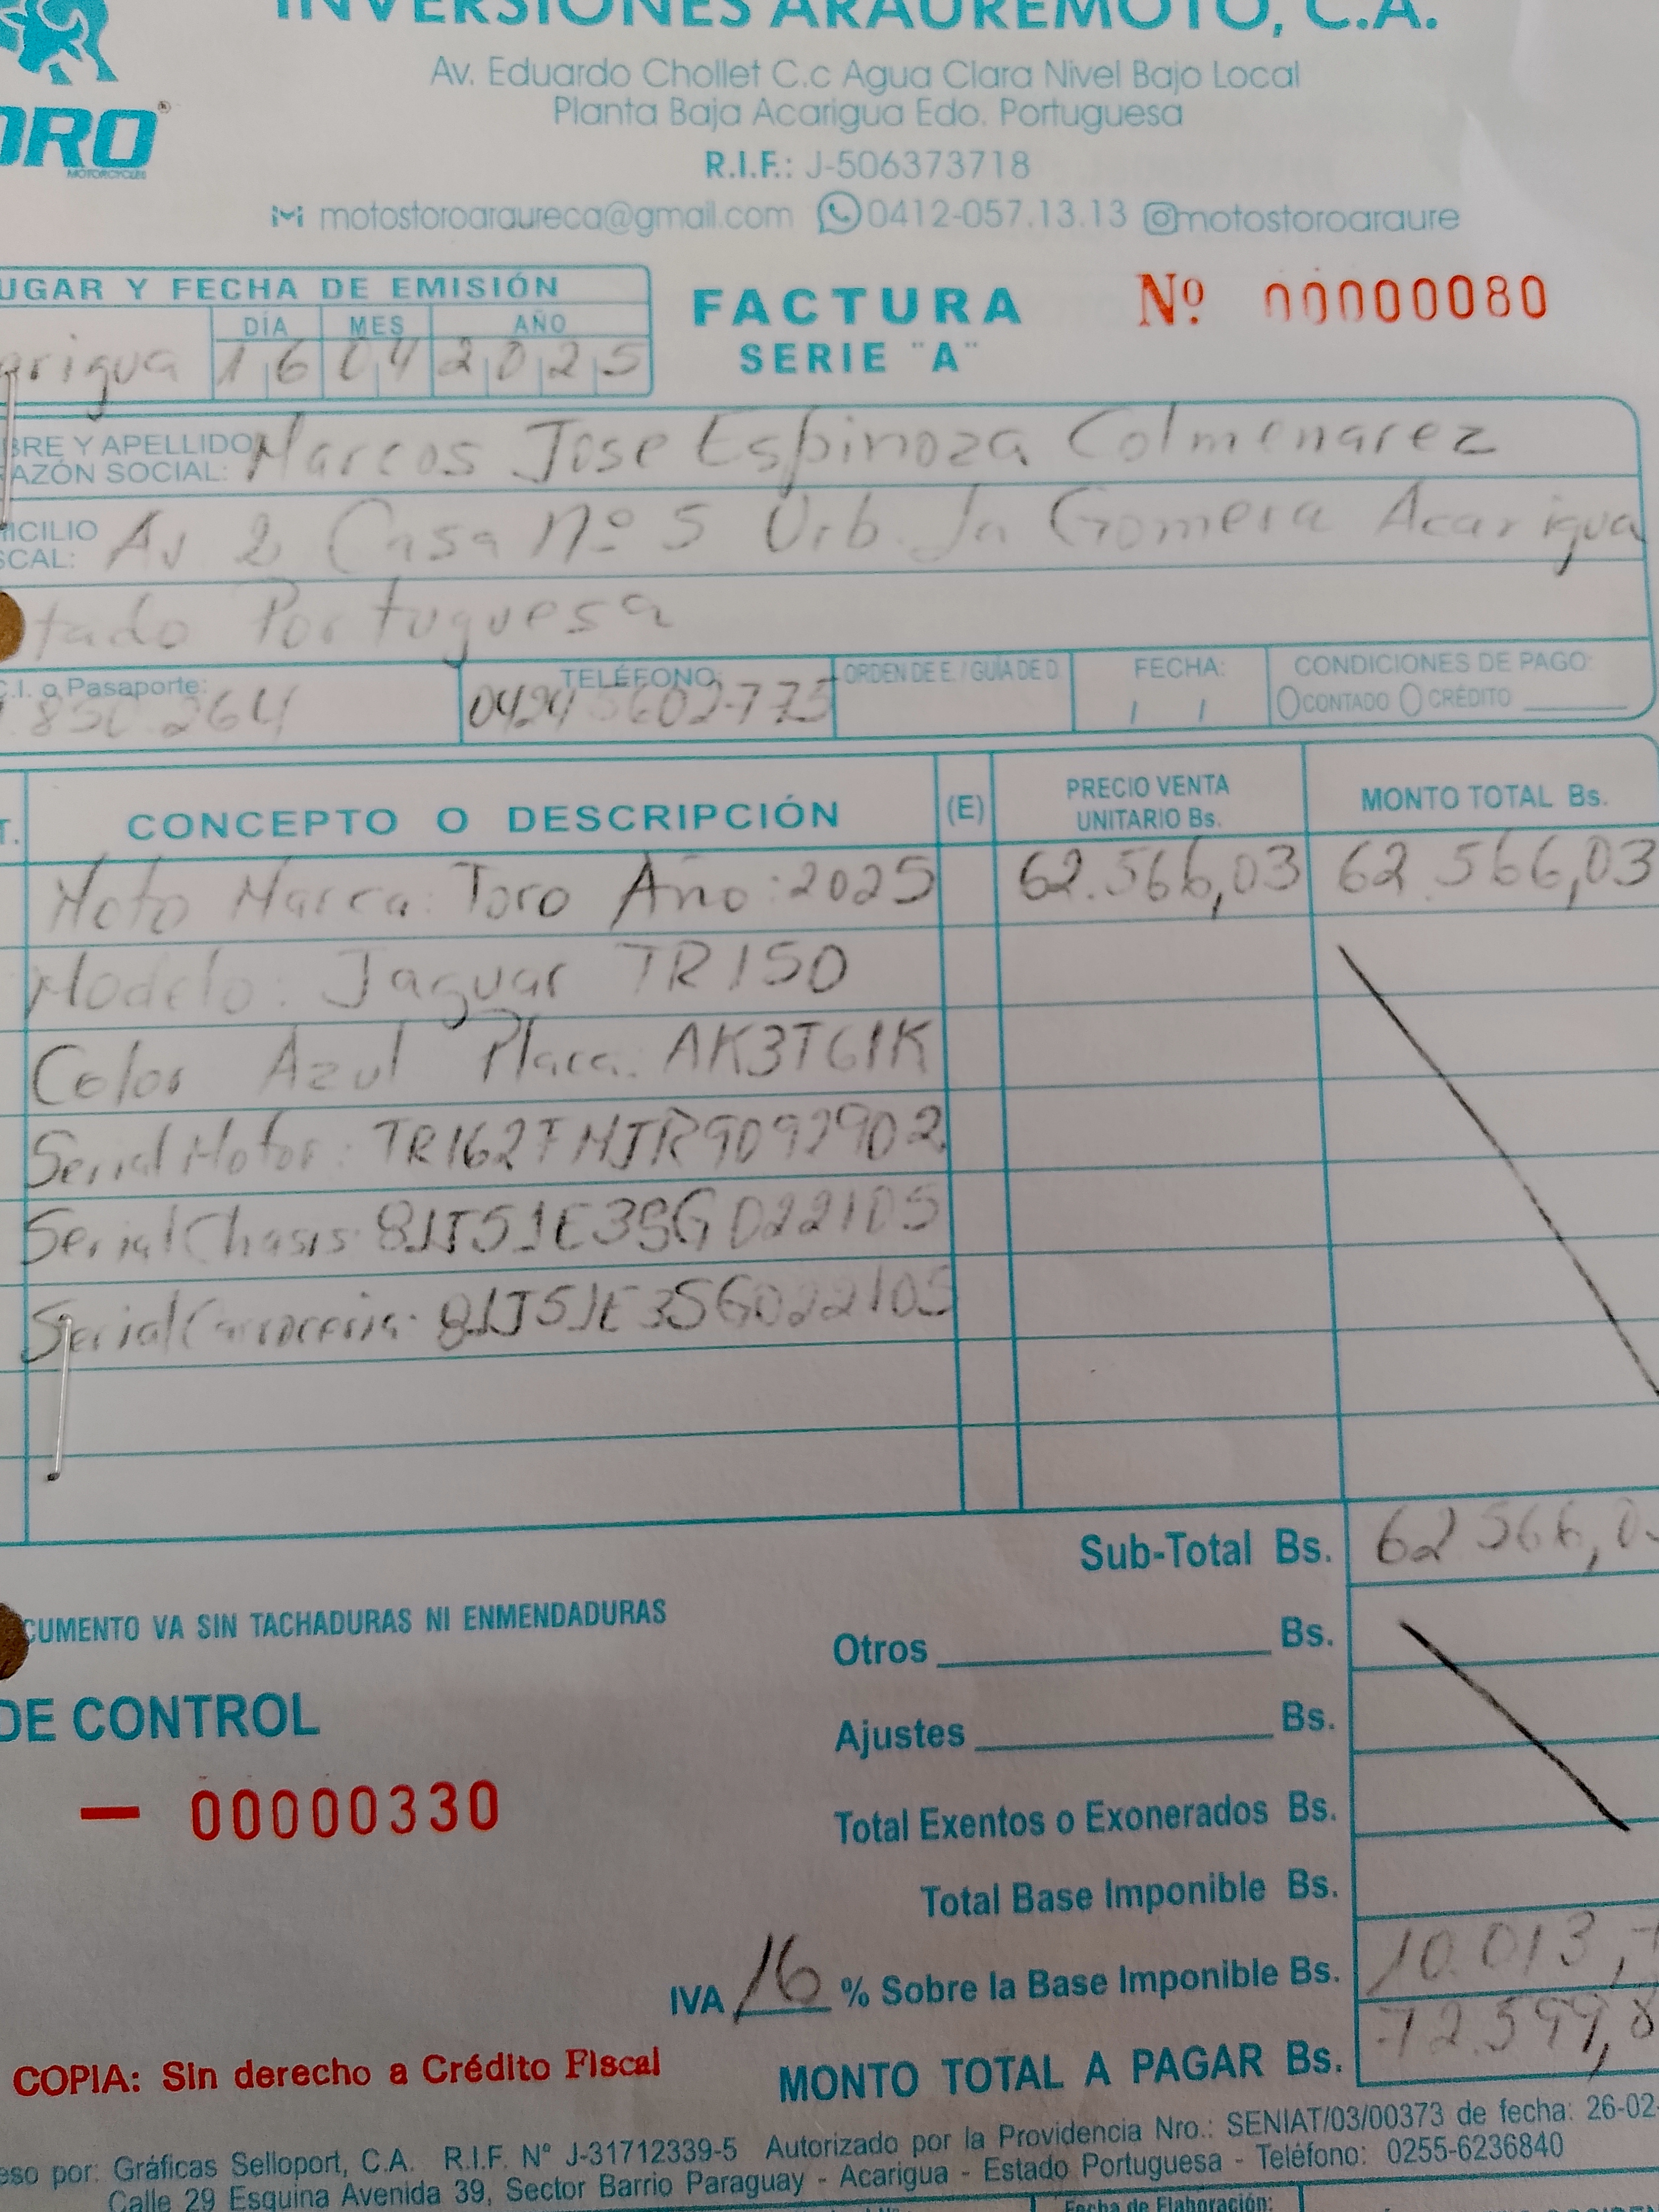 INVERSIONES ARAUREMOTO, C.A.
ORO®
MOTORCYCLES
Av. Eduardo Chollet C.c Agua Clara Nivel Bajo Local
Planta Baja Acarigua Edo. Portuguesa
R.I.F.: J-506373718
motostoroaraureca@gmail.com 0412-057.13.13 motostoroaraure
UGAR Y FECHA DE EMISIÓN
DÍA MES AÑO
arigua 16 04 2025
FACTURA Nº 00000080
SERIE "A"
BRE Y APELLIDO
AZÓN SOCIAL: Marcos Jose Espinoza Colmenarez
ICILIO
SCAL: Av 2 Casa Nº 5 Urb. La Gomera Acarigua
tado Portuguesa
C.I. o Pasaporte: TELÉFONO: ORDEN DE E. / GUÍA DE D FECHA: CONDICIONES DE PAGO:
.850.264 0424 5602775 / / CONTADO CRÉDITO
T. CONCEPTO O DESCRIPCIÓN (E) PRECIO VENTA UNITARIO Bs. MONTO TOTAL Bs.
Moto Marca: Toro Año: 2025 62.566,03 62.566,03
Modelo: Jaguar TR150
Color Azul Placa: AK3T61K
Serial Motor: TR162FMJR9092902
Serial Chasis: 81J51E3SG022105
Serial Carroceria: 81J51E3SG022105
Sub-Total Bs. 62.566,0
CUMENTO VA SIN TACHADURAS NI ENMENDADURAS
Otros Bs.
DE CONTROL
Ajustes Bs.
— 00000330
Total Exentos o Exonerados Bs.
Total Base Imponible Bs.
IVA 16 % Sobre la Base Imponible Bs. 10.013,
COPIA: Sin derecho a Crédito Fiscal
MONTO TOTAL A PAGAR Bs. 72.599,8
eso por: Gráficas Selloport, C.A. R.I.F. N° J-31712339-5 Autorizado por la Providencia Nro.: SENIAT/03/00373 de fecha: 26-02-
Calle 29 Esquina Avenida 39, Sector Barrio Paraguay - Acarigua - Estado Portuguesa - Teléfono: 0255-6236840
Fecha de Elaboración: